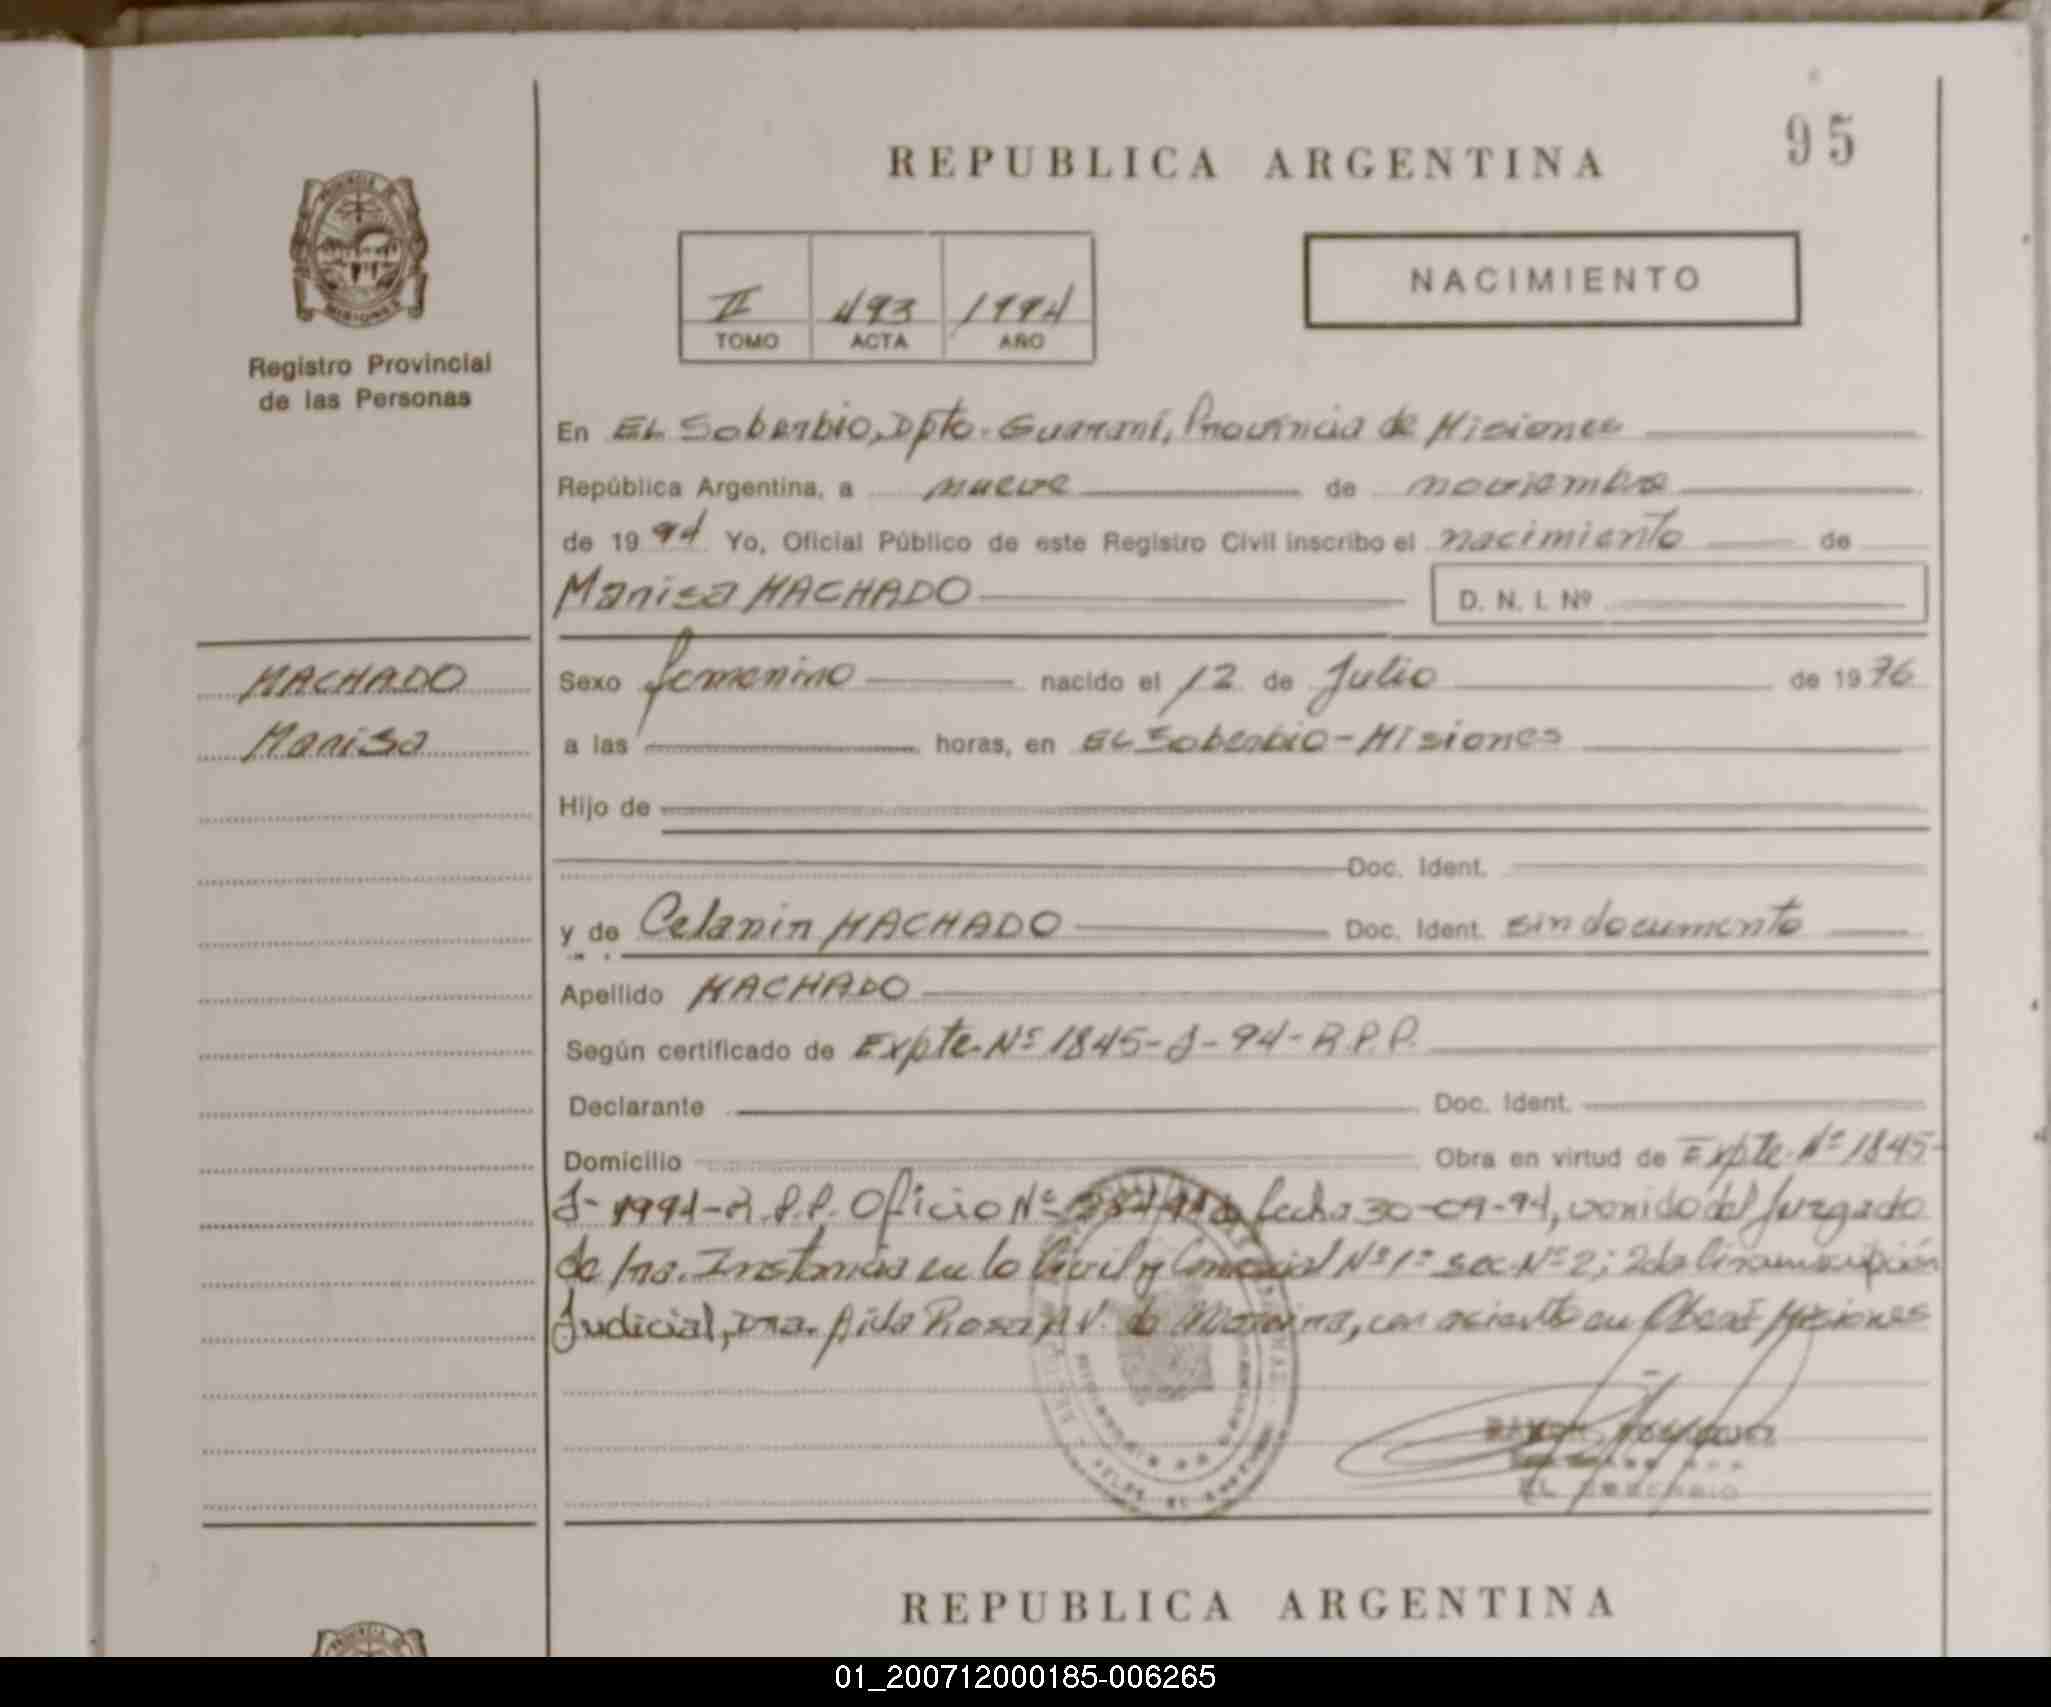 95
REPUBLICA ARGENTINA
PROVINCIA DE
MISIONES
Registro Provincial
de las Personas
II 493 1994
TOMO ACTA AÑO
NACIMIENTO
En EL Soberbio, Dpto. Guaraní, Provincia de Misiones
República Argentina, a nueve de noviembre
de 1994 Yo, Oficial Público de este Registro Civil inscribo el nacimiento de
Marisa MACHADO D. N. I. Nº
MACHADO
Marisa
Sexo femenino nacido el 12 de Julio de 1976
a las horas, en EL Soberbio - Misiones
Hijo de
Doc. Ident.
y de Celanin MACHADO Doc. Ident. sin documento
Apellido MACHADO
Según certificado de Expte. Nº 1845-J-94-R.P.P.
Declarante Doc. Ident.
Domicilio Obra en virtud de Expte. Nº 1845-
J-1994-R.P.P. Oficio Nº fecha 30-09-94, venido del Juzgado
de 1ra. Instancia en lo Civil y Comercial Nº 1º sec. Nº 2; 2da Circunscripción
Judicial, Dra. Aida Rosa V. de con asiento en Oberá Misiones
RAMON
EL SOBERBIO
REPUBLICA ARGENTINA
01_200712000185-006265